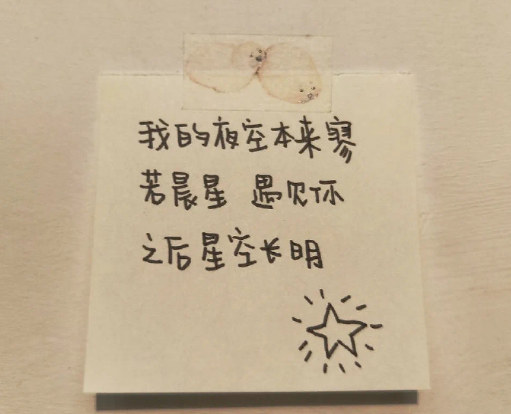 我的夜空本来寥
若晨星 遇见你
之后星空长明